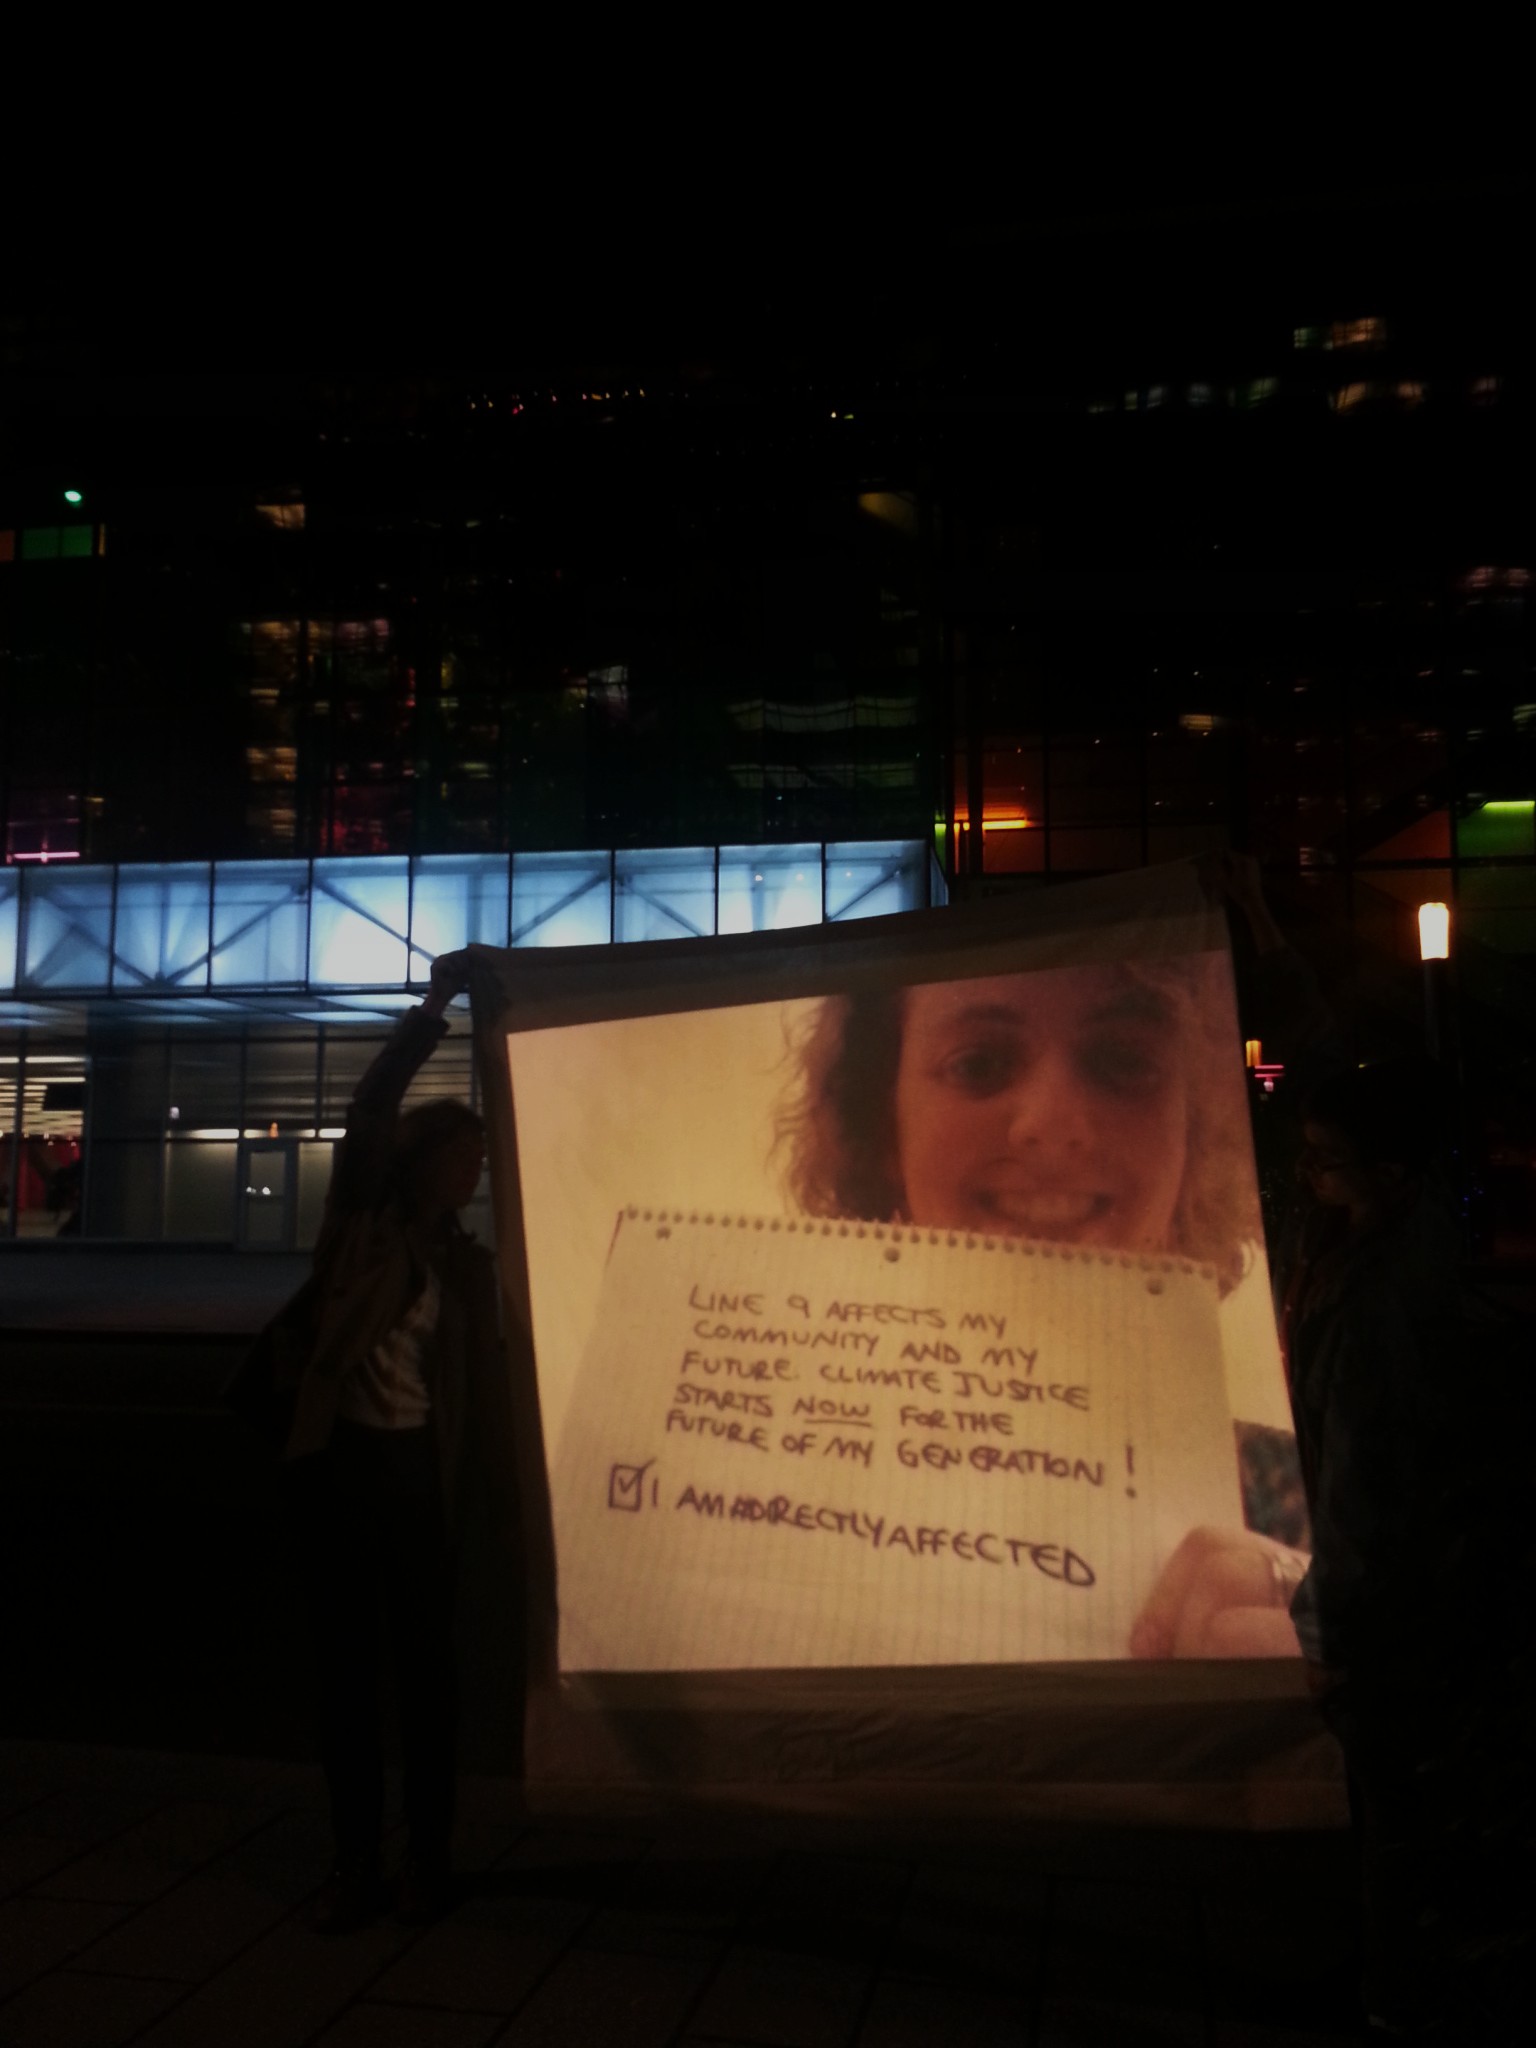 LINE 9 AFFECTS MY
COMMUNITY AND MY
FUTURE. CLIMATE JUSTICE
STARTS NOW FOR THE
FUTURE OF MY GENERATION!
I AM#DIRECTLYAFFECTED